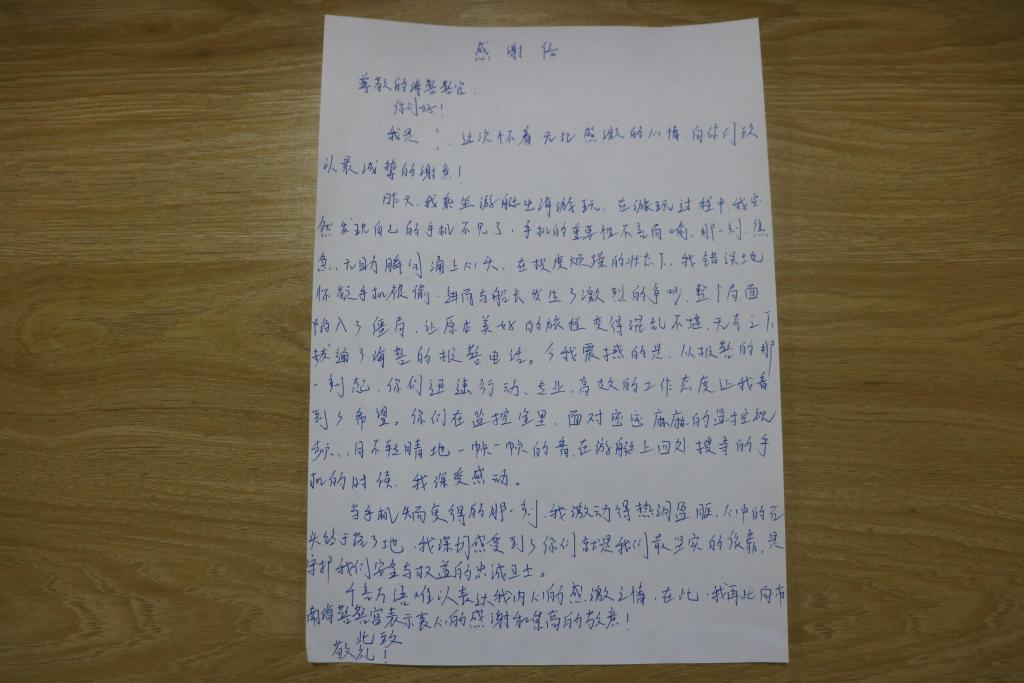 感谢信
尊敬的海警警官：
你们好！
我是 ，这次怀着无比感激的心情，向你们致
以最诚挚的谢意！
昨天，我乘坐游艇出海游玩，在游玩过程中，我突
然发现自己的手机不见了，手机的重要性不言而喻，那一刻，焦
急、无助瞬间涌上心头，在极度烦躁的状态下，我错误地
怀疑手机被偷，进而与船长发生了激烈的争吵，整个局面
陷入了僵局，让原本美好的旅程变得混乱不堪，无奈之下
拨通了海警的报警电话。令我震撼的是，从报警的那
一刻起，你们迅速行动、专业、高效的工作态度让我看
到了希望。你们在监控室里，面对密密麻麻的监控视
频、目不转睛地一帧一帧的看，在游艇上四处搜寻的手
机的时候，我深受感动。
当手机失而复得的那一刻，我激动得热泪盈眶，心中的石
头终于落了地，我深切感受到了你们就是我们最坚实的依靠，是
守护我们安全与权益的忠诚卫士。
千言万语难以表达我内心的感激之情，在此，我再此向市
南海警警官表示衷心的感谢和崇高的敬意！
此致
敬礼！